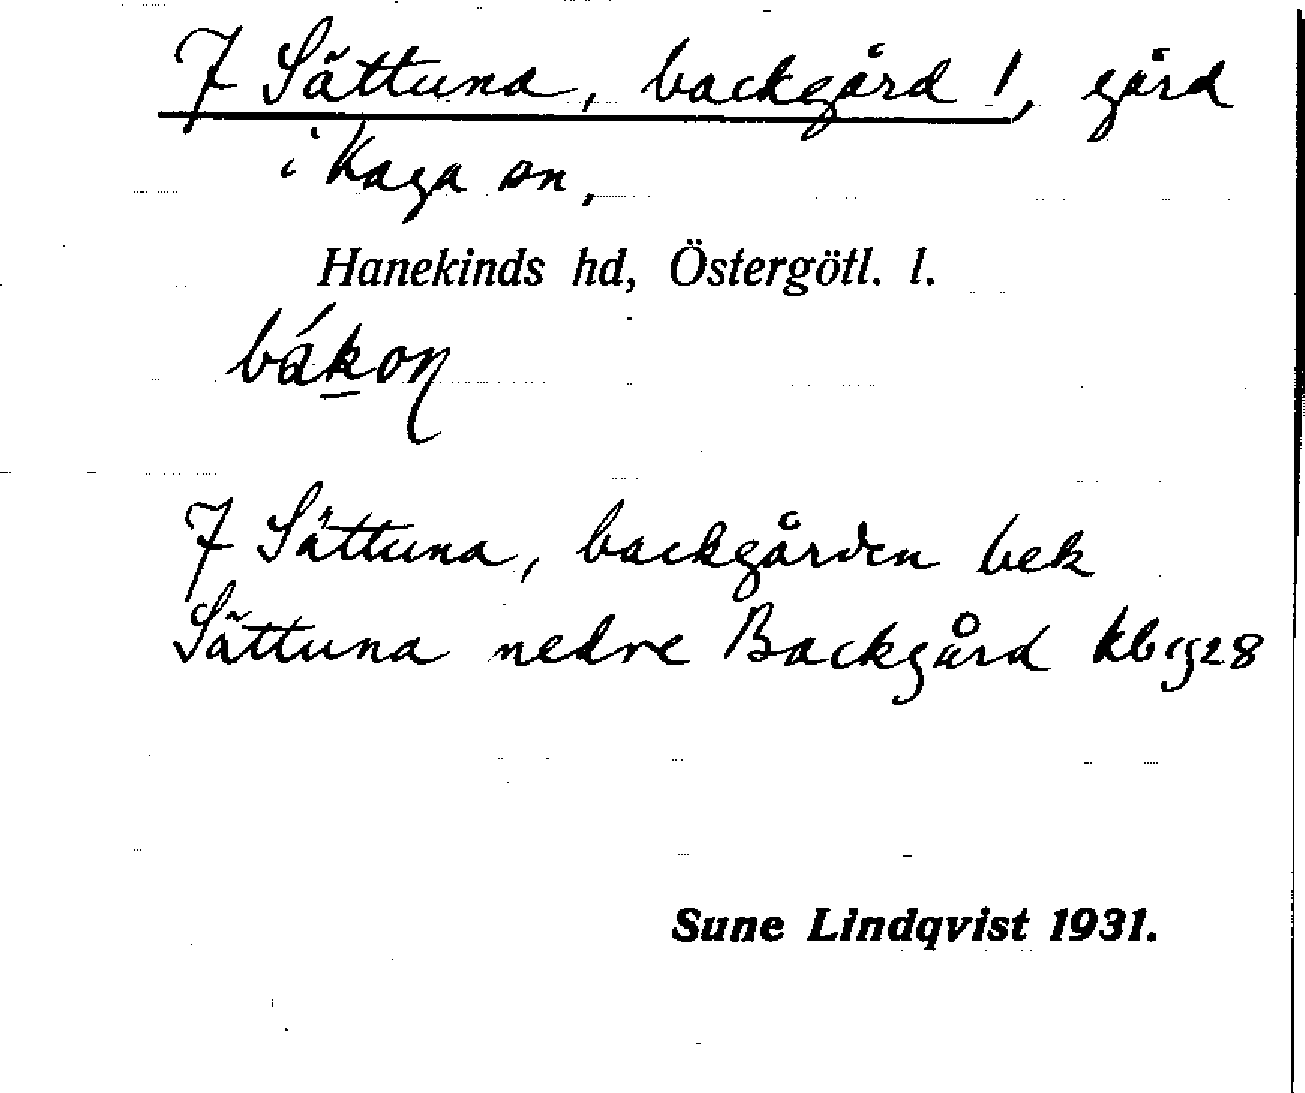 7 Sättuna, backgård 1, gård
i Kaga sn,
Hanekinds hd, Östergötl. l.
bákoη
7 Sättuna, backgården bek
Sättuna nedre Backgård kb 1928
Sune Lindqvist 1931.